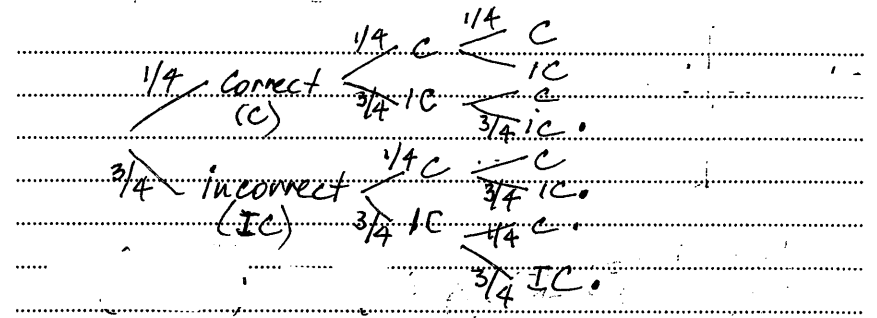 1/4 C
1/4 C IC
1/4 Correct (C) 3/4 IC C
3/4 IC .
3/4 incorrect (IC) 1/4 C C
3/4 IC .
3/4 IC 1/4 C .
3/4 IC .